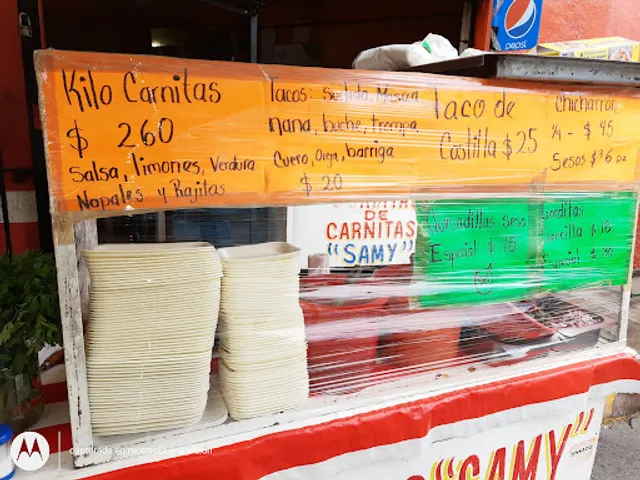 Kilo Carnitas
$ 260
Salsa, limones, Verdura
Nopales y Rajitas
Tacos: Surtido, Maciza
nana, buche, trompa,
Cuero, Oreja, barriga
$ 20
Taco de
Costilla $ 25
Chicharron
¼ - $ 45
Sesos $ 36 pz
pepsi
DE
CARNITAS
"SAMY"
Quesadillas Seso
Especial $ 15
Gorditas
Sencilla $ 18
Especial $ 30
"SAMY"